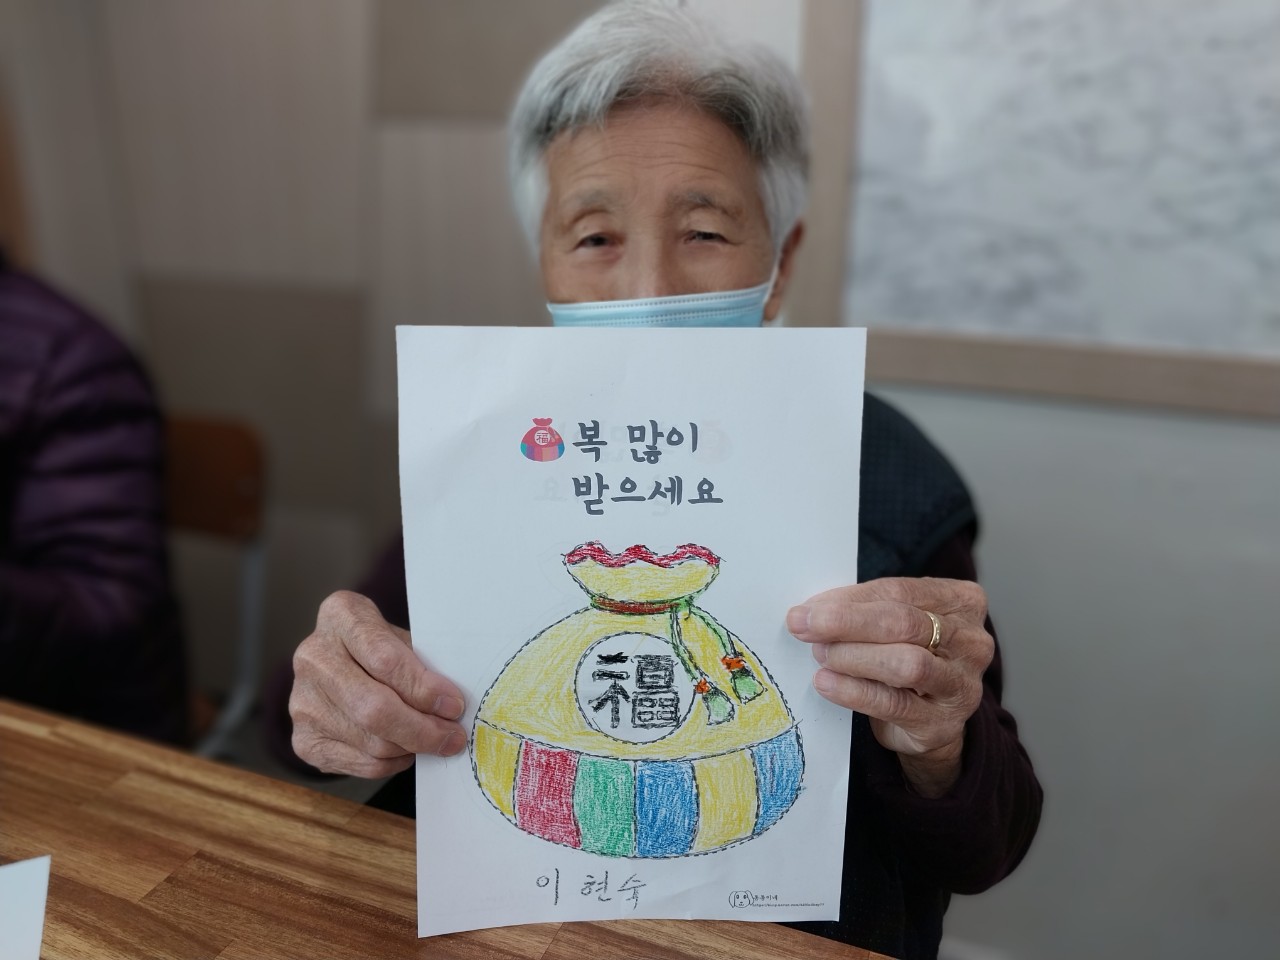 福
복 많이
받으세요
福
이현숙